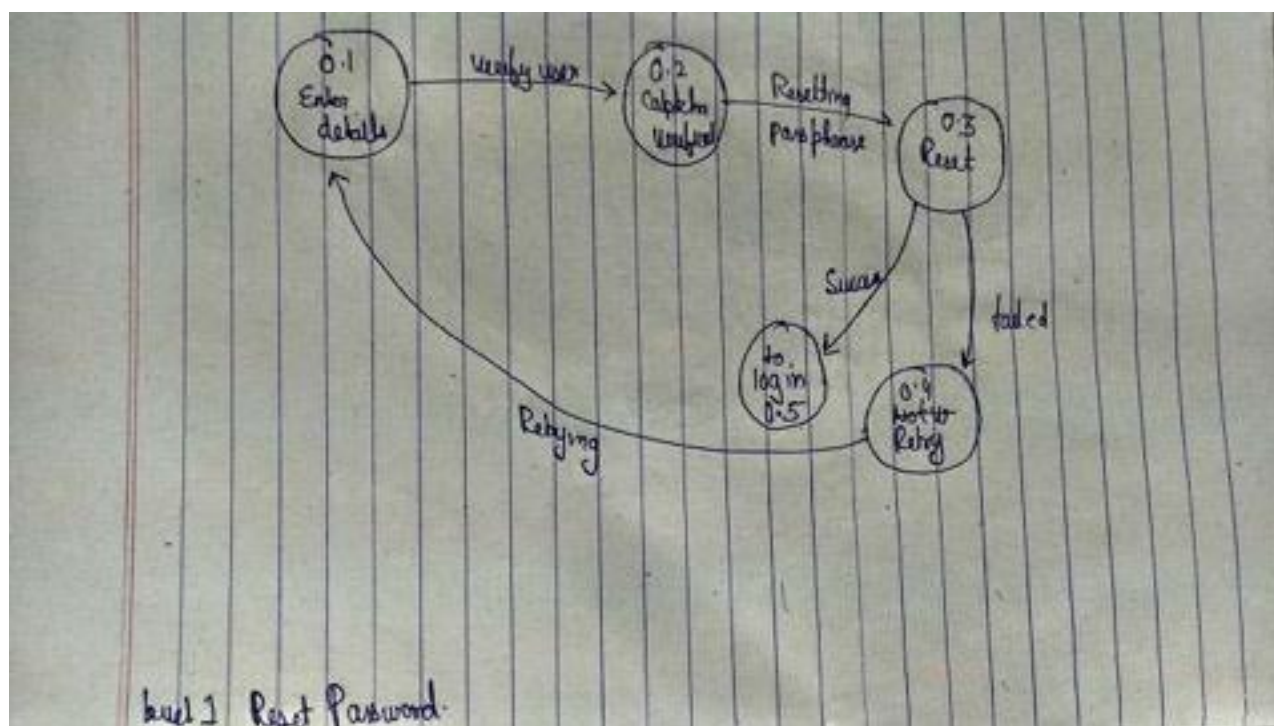 0.1
Enter
details
verify user
0.2
Captcha
verified
Resetting
passphrase
0.3
Reset
Success
failed
to
login
0.5
0.4
Retry
Retrying
level 1 Reset Password.